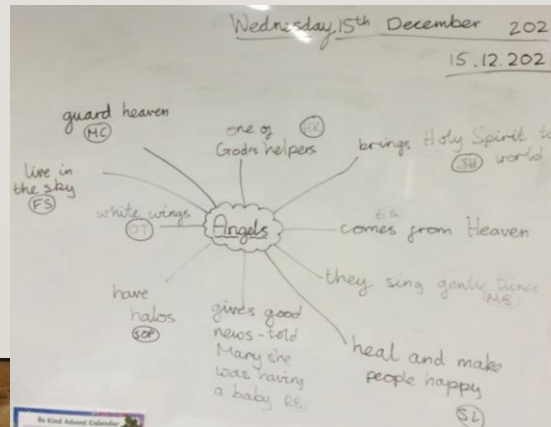 Wednesday, 15th December 202
15.12.202
guard heaven
MC
one of
God's helpers
HK
brings Holy Spirit to
world
live in
the sky
FS
white wings
OT
Angels
EG
comes from Heaven
they sing gentle tunes
MB
have
halos
SOP
gives good
news - told
Mary she
was having
a baby
heal and make
people happy
SL
Be Kind Advent Calendar